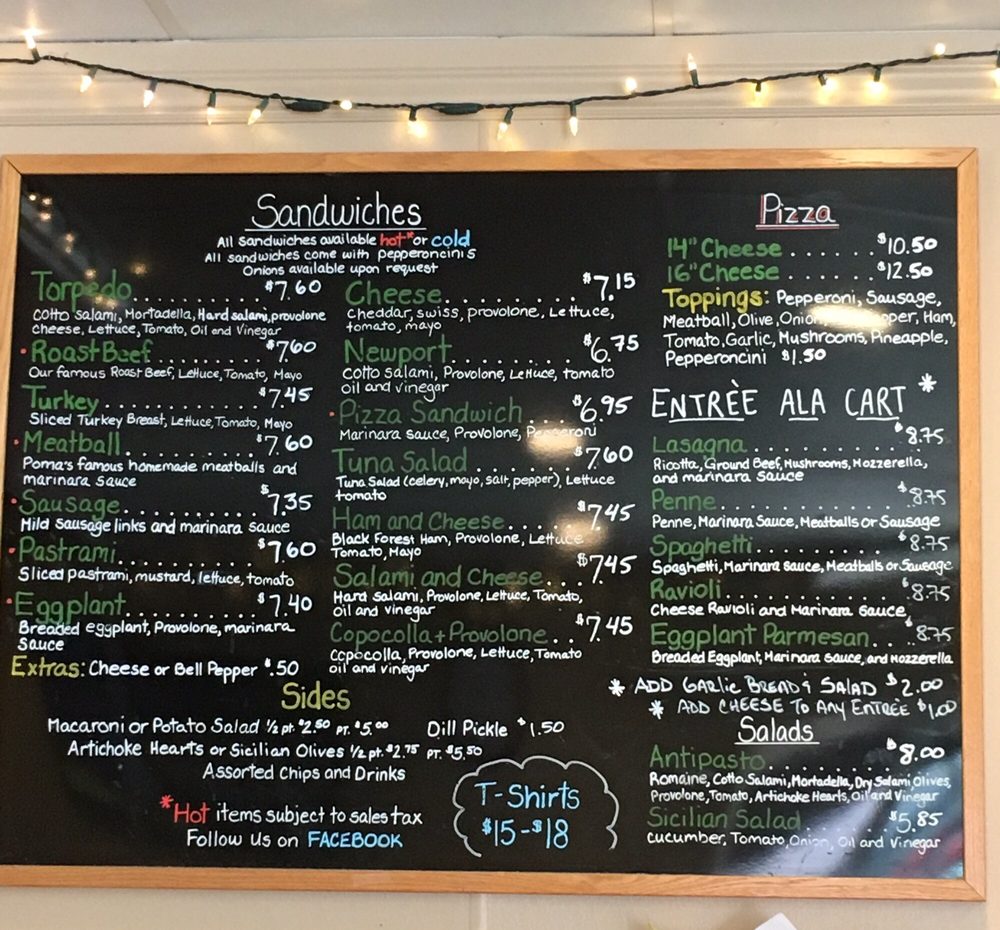 Sandwiches
All sandwiches available hot* or cold
All sandwiches come with pepperoncinis
Onions available upon request
Torpedo.............$7.60
Cotto salami, Mortadella, Hard salami, provolone
cheese, Lettuce, Tomato, Oil and Vinegar
Roast Beef..........$7.60
Our famous Roast Beef, Lettuce, Tomato, Mayo
Turkey..............$7.45
Sliced Turkey Breast, Lettuce, Tomato, Mayo
Meatball............$7.60
Poma's famous homemade meatballs and
marinara sauce
Sausage............$7.35
Mild Sausage links and marinara sauce
Pastrami............$7.60
Sliced pastrami, mustard, lettuce, tomato
Eggplant............$7.40
Breaded eggplant, Provolone, marinara
Sauce
Extras: Cheese or Bell Pepper $.50
Cheese............$7.15
Cheddar, swiss, provolone, Lettuce,
tomato, mayo
Newport............$6.75
Cotto salami, Provolone, Lettuce, tomato
oil and vinegar
Pizza Sandwich.....$6.95
Marinara sauce, Provolone, Pepperoni
Tuna Salad.........$7.60
Tuna Salad (celery, mayo, salt, pepper), Lettuce
tomato
Ham and Cheese.....$7.45
Black Forest Ham, Provolone, Lettuce
Tomato, Mayo
Salami and Cheese...$7.45
Hard salami, Provolone, Lettuce, Tomato,
oil and vinegar
Copocolla + Provolone..$7.45
copocolla, Provolone, Lettuce, Tomato
oil and vinegar
Sides
Macaroni or Potato Salad ½ pt. $2.50 pt. $5.00 Dill Pickle $1.50
Artichoke Hearts or Sicilian Olives ½ pt. $2.75 pt. $5.50
Assorted Chips and Drinks
*Hot items subject to sales tax
Follow us on FACEBOOK
T-Shirts
$15-$18
Pizza
14" Cheese.......$10.50
16" Cheese.......$12.50
Toppings: Pepperoni, Sausage,
Meatball, Olive, Onion, Ham,
Tomato, Garlic, Mushrooms, Pineapple,
Pepperoncini $1.50
ENTRÈE ALA CART *
Lasagna...........$8.75
Ricotta, Ground Beef, Mushrooms, Mozzerella,
and marinara Sauce
Penne.............$8.75
Penne, Marinara Sauce, Meatballs or Sausage
Spaghetti.........$8.75
Spaghetti, Marinara sauce, Meatballs or Sausage
Ravioli...........$8.75
Cheese Ravioli and Marinara Sauce
Eggplant Parmesan..$8.75
Breaded Eggplant, Marinara Sauce, and Mozzerella
* ADD GARLIC BREAD & SALAD $2.00
* ADD CHEESE TO ANY ENTRÈE $1.00
Salads
Antipasto.........$8.00
Romaine, Cotto Salami, Mortadella, Dry Salami, Olives,
Provolone, Tomato, Artichoke Hearts, Oil and Vinegar
Sicilian Salad......$5.85
Cucumber, Tomato, Onion, Oil and Vinegar